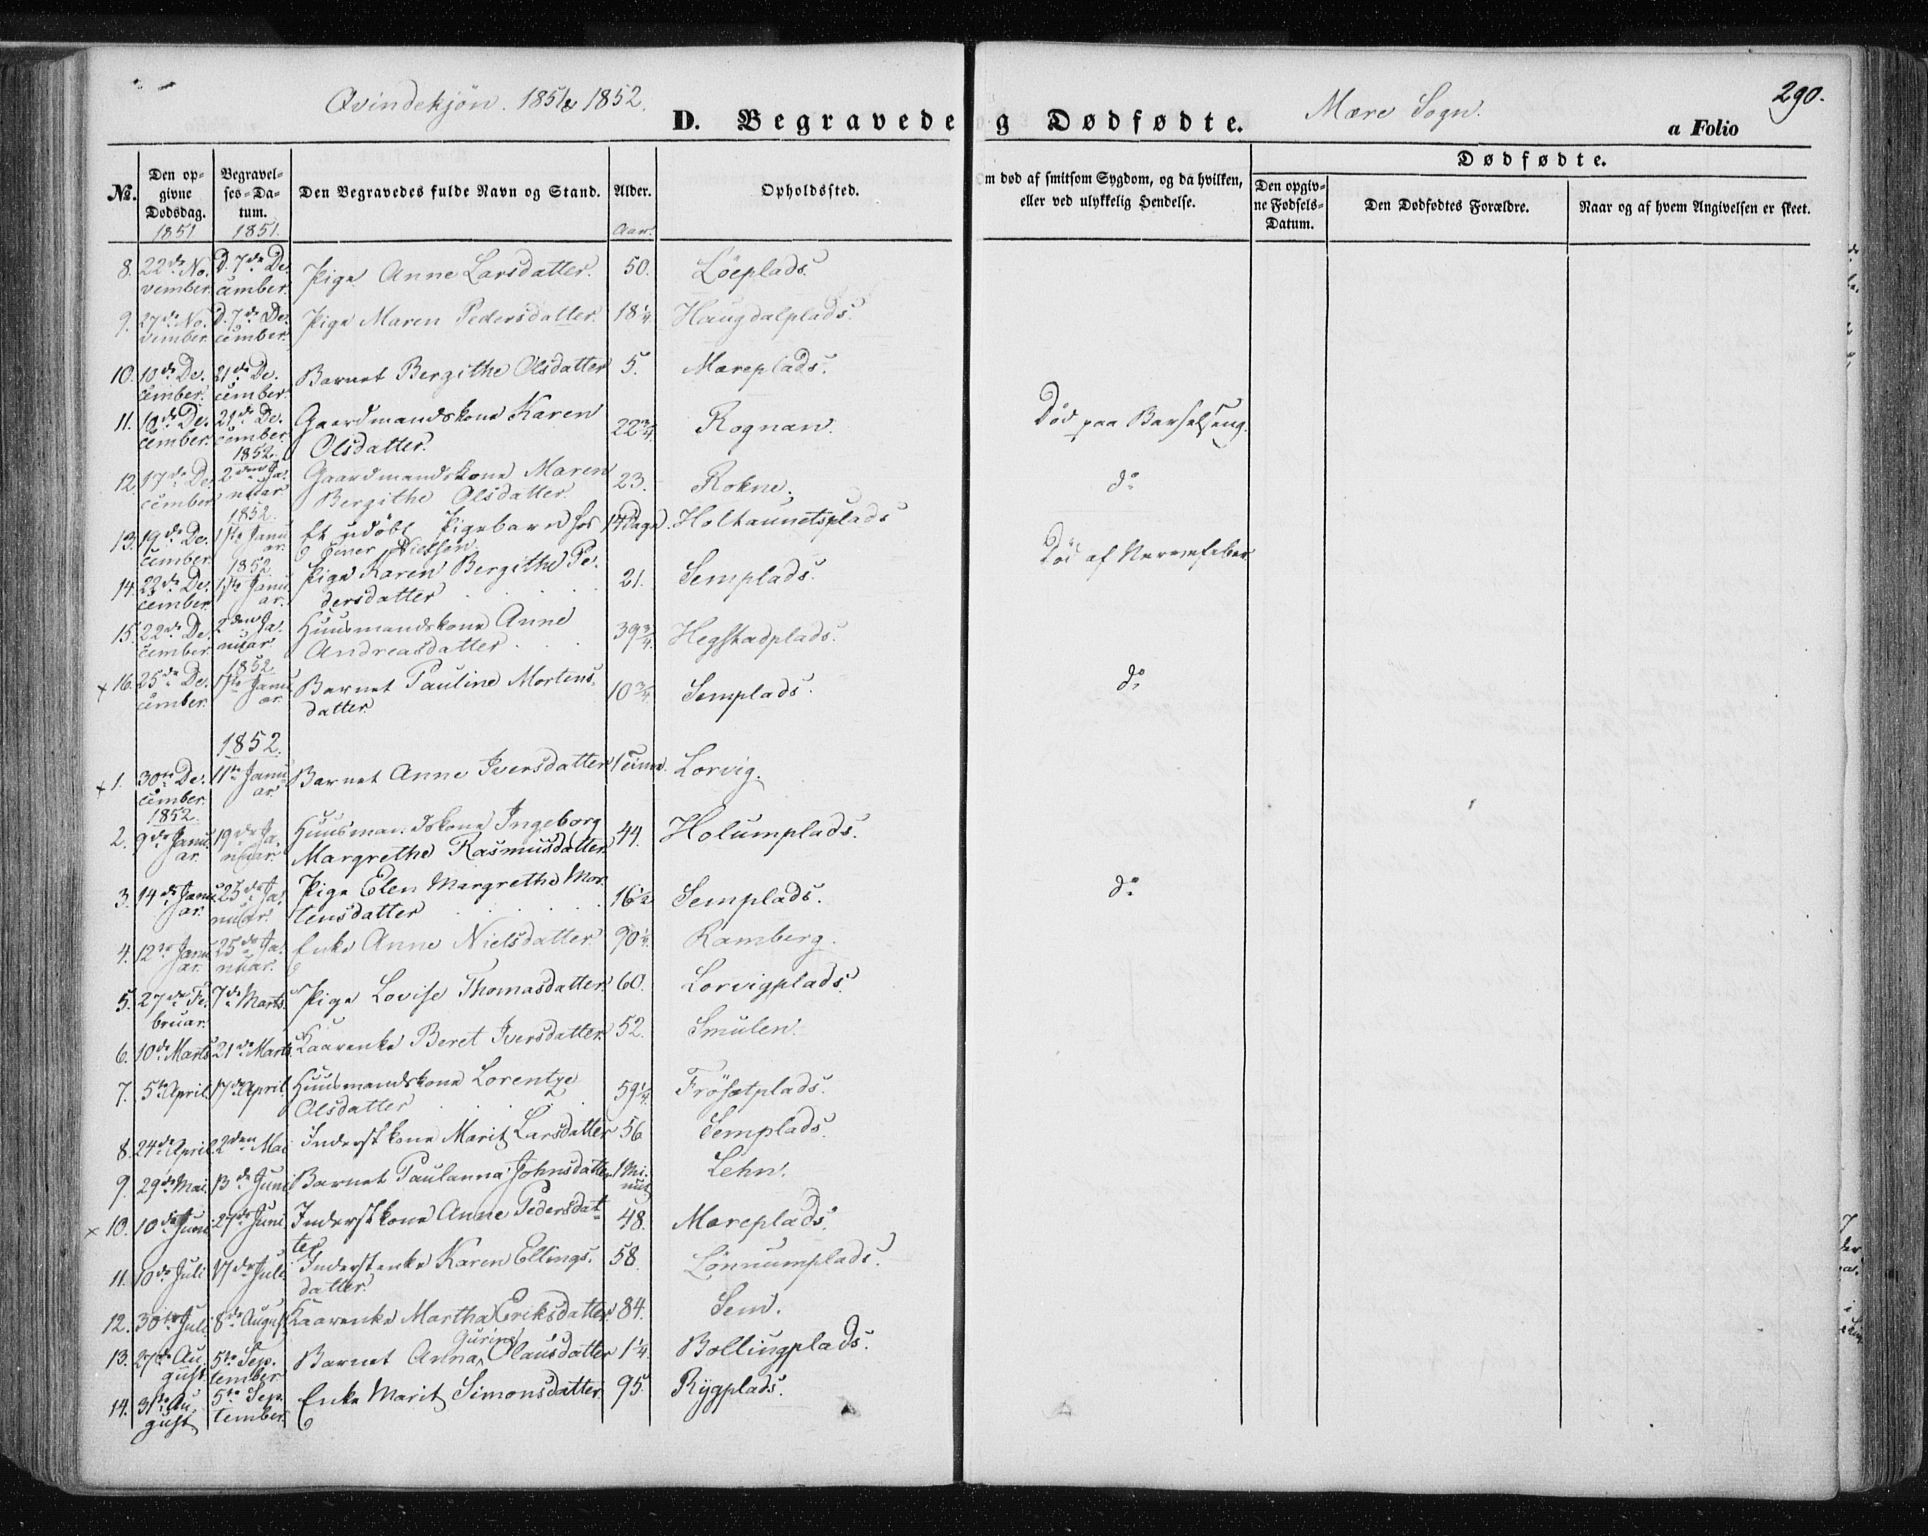 Qvindekjön. 1851 & 1852.
D. Begravede og Dødfødte.
Mære Sogn.
290.
a Folio
No. Den opgivne Dødsdag. 1851 Begravelses-Datum. 1851. Den Begravedes fulde Navn og Stand. Alder. Aar. Opholdssted. Om død af smitsom Sygdom, og da hvilken, eller ved ulykkelig Hendelse.
Dødfødte.
Den opgivne Fødsels-Datum. Den Dødfødtes Forældre. Naar og af hvem Angivelsen er skeet.
8. 22de November. D. 7de December. Pige Anne Larsdatter. 50. Löeplads.
9. 27de November. D. 7de December. Pige Maren Pedersdatter. 18 1/4 Haugdalplads.
10. 10de December. 21de December. Barnet Bergithe Olsdatter 5. Mæreplads.
11. 10de December. 21de December. Gaardmandskone Karen Olsdatter. 22 3/4 Rognan. Död paa Barselseng.
12. 17de December 1852. 2den Januar Gaardmandskone Maren Bergithe Olsdatter. 23. Rokne. do
13. 19de December. 1852. 1ste Januar. Et udöbt Pigebarn hos Einer Nielsen 14 Dage. Holhaunetsplads
14. 22de December. 1852 1ste Januar. Pige Karen Bergithe Pedersdatter 21. Semplads. Död af Nervefeber
15. 22de December. 2den Januar Huusmandskone Anne Andreasdatter 39 3/4. Hegstadplads.
× 16. 25de December. 1852 1ste Januar. Barnet Pauline Mortensdatter. 10 3/4 Semplads. do
1852.
× 1. 30te December. 11te Januar. Barnet Anne Iversdatter 1 Time. Lorvig.
1852.
2. 9de Januar. 19de Januar. Huusmandskone Ingeborg Margrethe Rasmusdatter. 44. Holumplads.
3. 14de Januar. 25de Januar. Pige Elen Margrethe Mortensdatter 16 1/2 Semplads. do
4. 12te Januar. 25de Januar. Enke Anne Nielsdatter. 90 1/4. Ramberg.
5. 27de Februar. 7de Marts. Pige Lovise Thomasdatter. 60. Lorvigplads.
6. 10de Marts 21de Marts. Kaarenke Beret Iversdatter. 52. Smulen.
7. 5te April. 17de April. Huusmandskone Lorentze Olsdatter 59 1/4. Frösetplads.
8. 24de April. 2den Mai Inderstkone Marit Larsdatter 56 Semplads.
9. 29de Mai. 13de Juni Barnet Paulanna Johnsdatter 1 Minut Lehn.
× 10. 10de Juni. 27de Juni Inderstkone Anne Pedersdatter 48. Mæreplads.
11. 10de Juli 17de Juli Inderstenke Karen Ellingsdatter. 58. Lönnumplads.
12. 30te Juli 8de August Kaarenke Martha Eriksdatter 84. Sem.
13. 27de August. 5te September Barnet Anna Gurine Olausdatter 1 1/4. Bollingplads.
14. 31te August 5te September. Enke Marit Simonsdatter. 95. Rygplads.